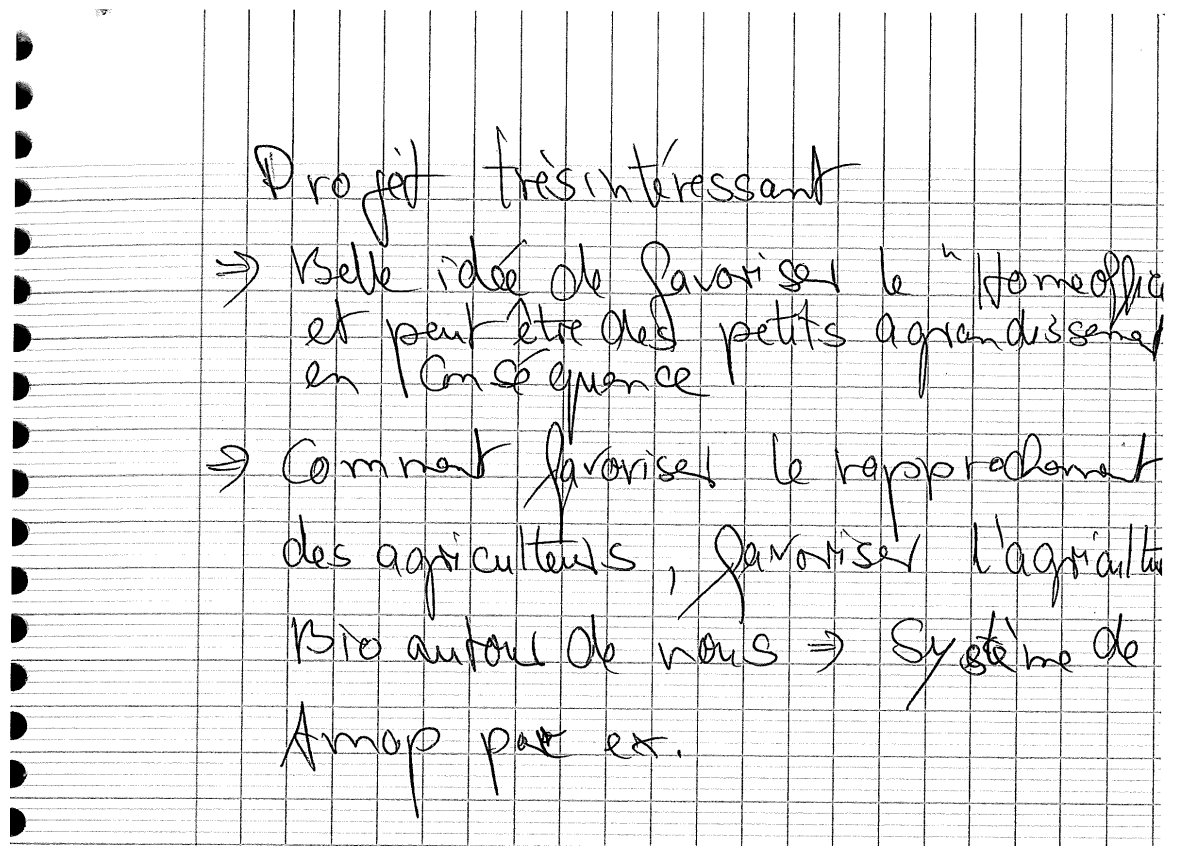 Projet très intéressant
⇒ Belle idée de favoriser le "Homeoffic
et peut être des petits agrandissemet
en conséquence
⇒ Comment favoriser le rapprochement
des agriculteurs, favoriser l'agricultu
Bio autour de nous ⇒ Système de
Amap par ex.